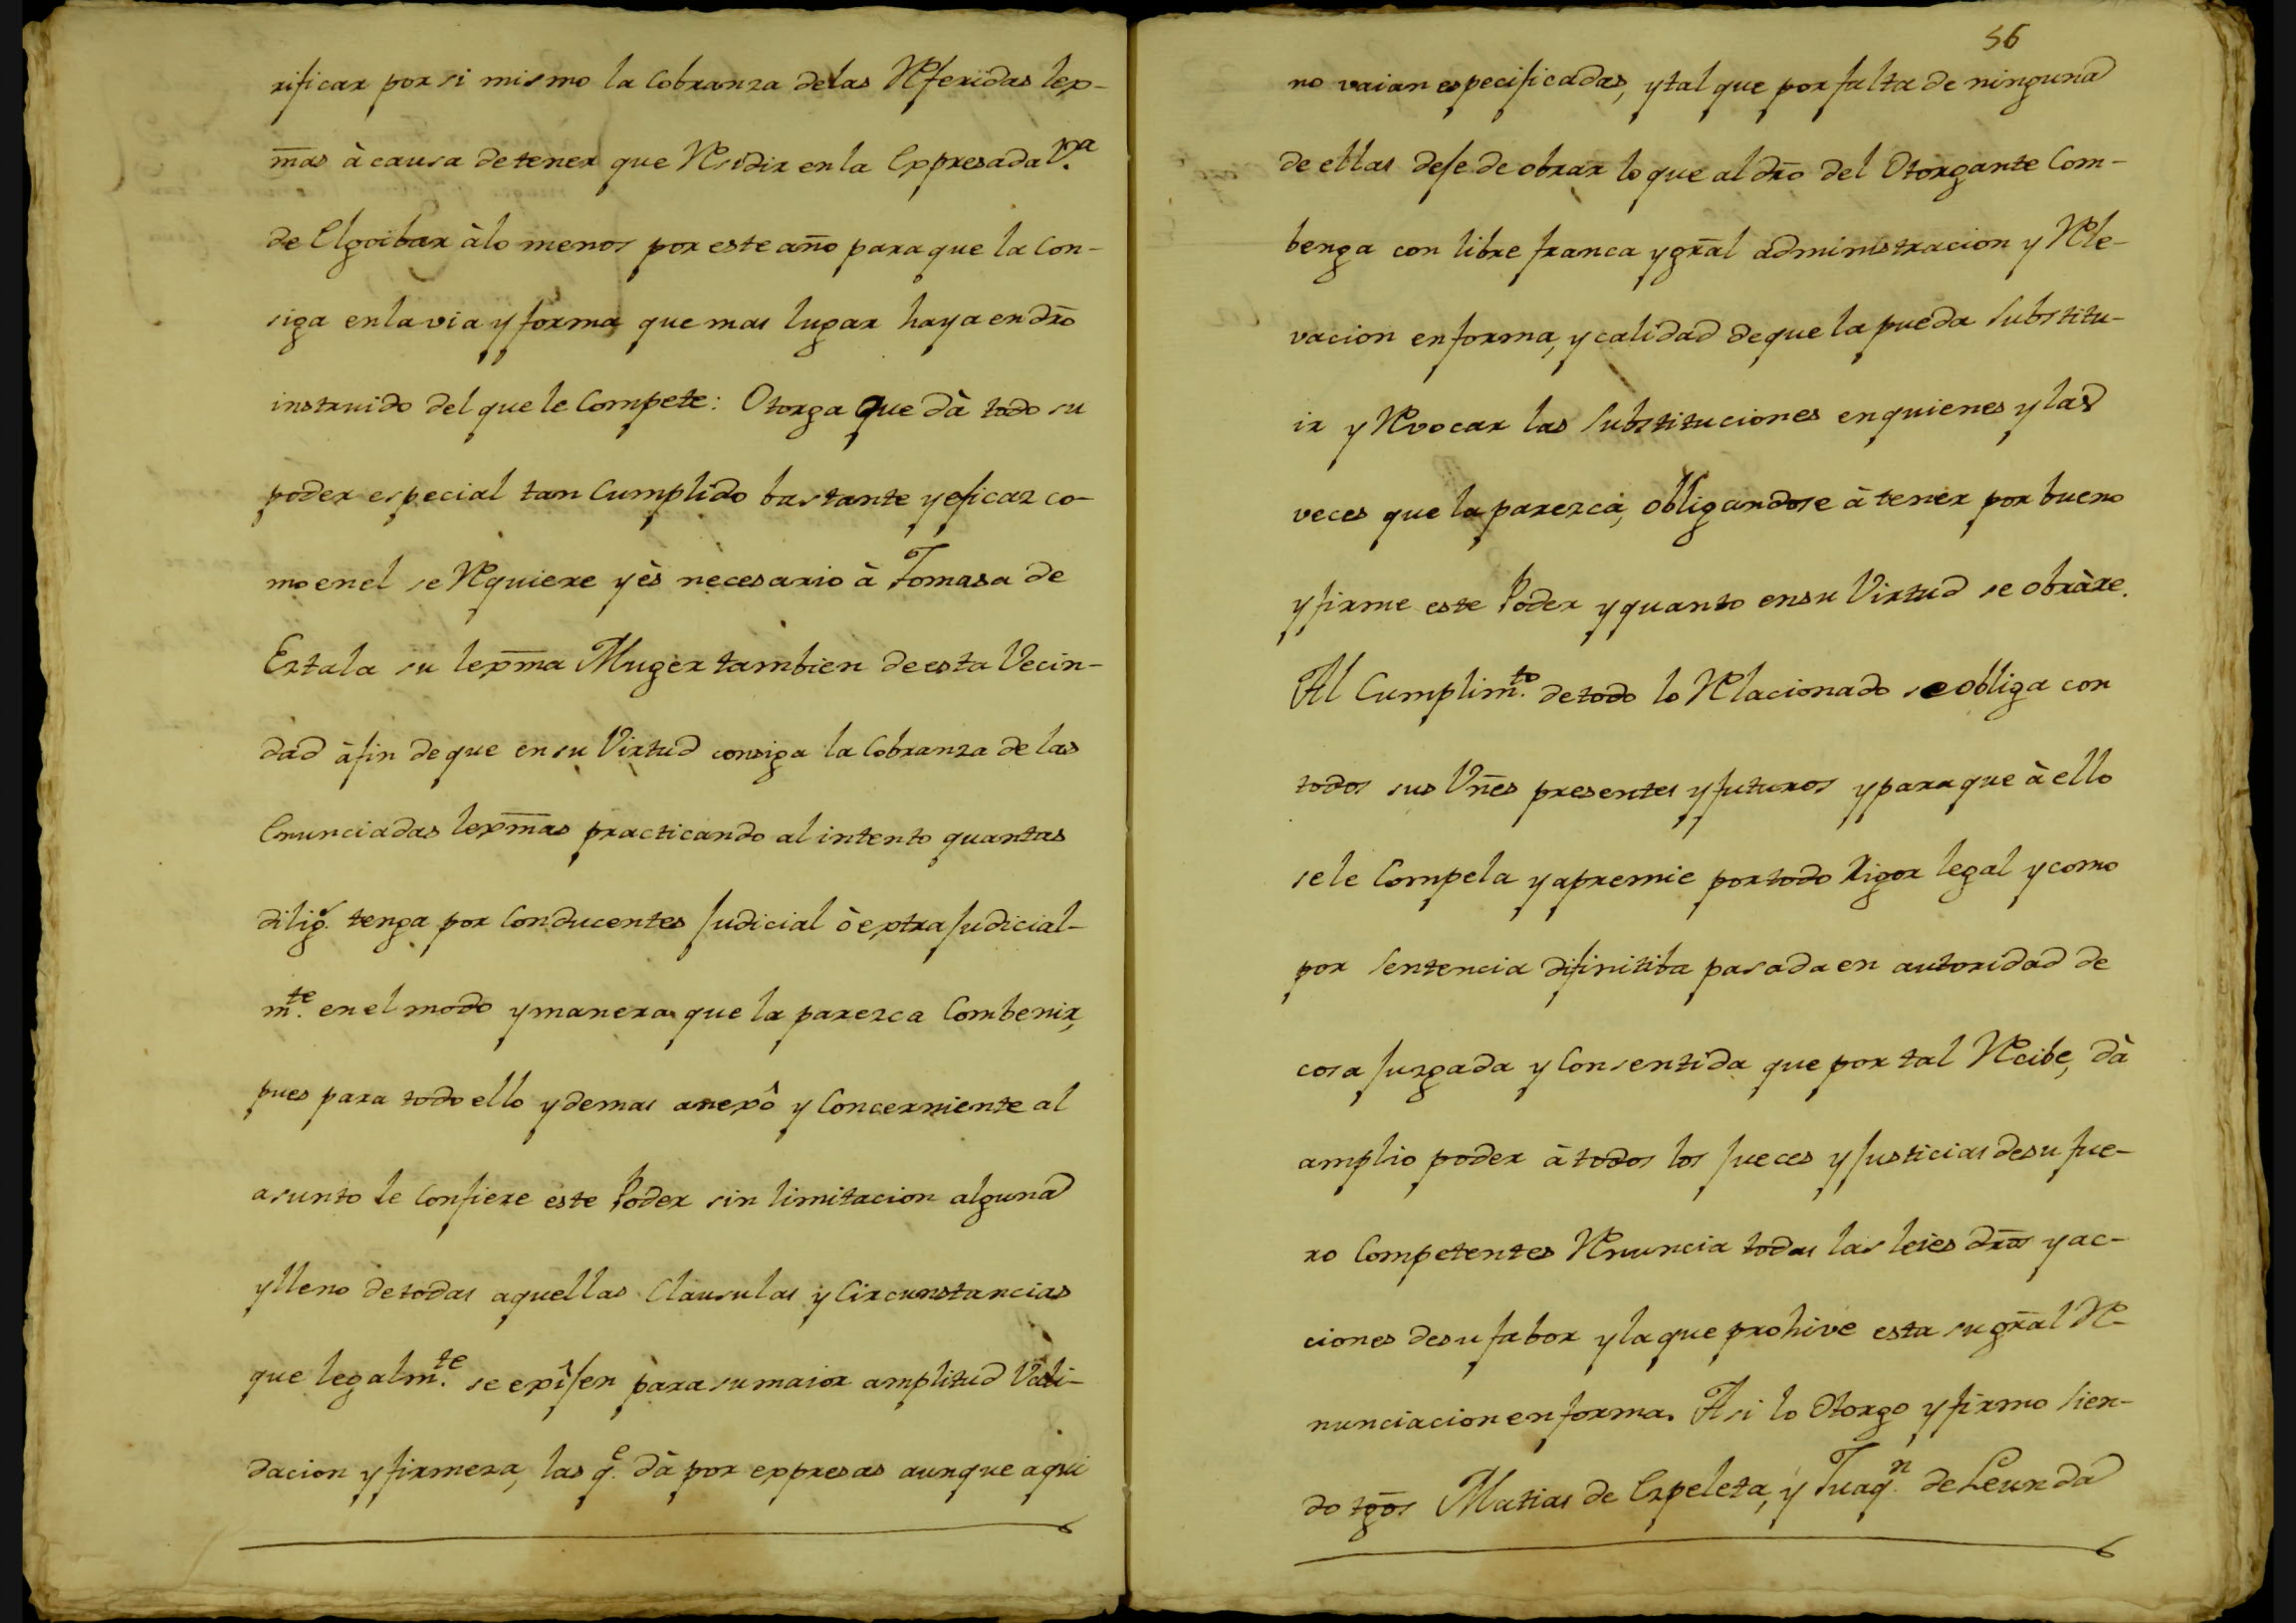 rificar por si mismo la Cobranza delas Referidas lex-
m̄as à causa detener que Residir enla Expresada V.ª
de Elgoibar àlo menos por este año paraque la Con-
siga enlavia y forma que mas lugar haya en dr̄o
instruido del que le Compete: Otorga que dà todo su
poder especial tan Cumplido bastante y eficaz co-
mo enel se Requiere y ès necesario à Tomasa de
Eztala su lexm̄a Muger tambien de esta Vecin-
dad àfin deque en su Virtud consiga la Cobranza de las
Enunciadas lexm̄as practicando al intento quantas
dilig.ˢ tenga por Conducentes Judicial ò extraJudicial-
m.ᵗᵉ enel modo y manera que la parezca Combenir,
pues para todo ello y demas anexô y Concerniente al
asunto le Confiere este Poder sin limitacion alguna
y lleno detodas aquellas Clausulas y Circunstancias
que legalm.ᵗᵉ se exîJen para su maior amplitud Vali-
dacion y firmeza, las q.ᵉ dà por expresas aunque aqui
56
no vaian especificadas, y tal que por falta de ninguna
de ellas deJe de obrar lo que al dr̄o del Otorgante Com-
benga con libre franca y gr̄al administracion y Rele-
vacion en forma, y calidad deque la pueda Substitu-
ir y Revocar las Substituciones en quienes y las
veces que la parezca, obligandose à tener por bueno
y firme este Poder y quanto ensu Virtud se obràre.
Al Cumplim.ᵗᵒ detodo lo Relacionado se obliga con
todos sus Vn̄es presentes y futuros y paraque à ello
sele Compela y apremie portodo Rigor legal y como
por Sentencia difinitiba pasada en autoridad de
cosa Juzgada y Consentida que por tal Recibe, dà
amplio poder à todos los Jueces y Justicias desu fue-
ro Competentes Renuncia todas las leies dr̄os y ac-
ciones desu fabor y la que prohive esta su gr̄al Re-
nunciacion en forma. Asi lo Otorgo y firmo Sien-
do tḡos Matias de Ezpeleta, y Juaq.ⁿ de Leunda